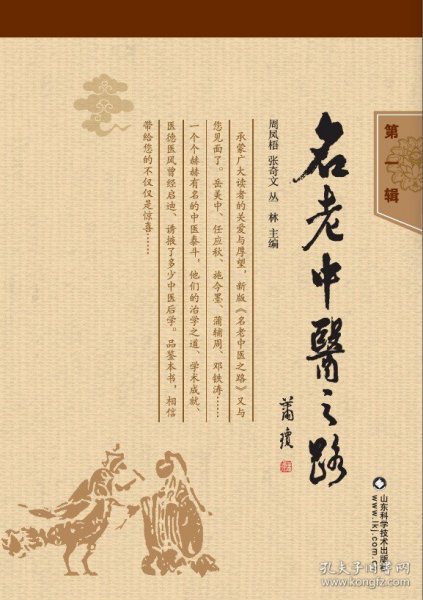 第一辑
名老中醫之路
萧琼
周凤梧 张奇文 丛 林 主编
承蒙广大读者的关爱与厚望，新版《名老中医之路》又与
您见面了。岳美中、任应秋、施今墨、蒲辅周、邓铁涛……
一个个赫赫有名的中医泰斗，他们的治学之道、学术成就、
医德医风曾经启迪、诱掖了多少中医后学。品鉴本书，相信
带给您的不仅仅是惊喜……
山东科学技术出版社
www.lkj.com.cn
孔夫子旧书网
www.kongfz.com